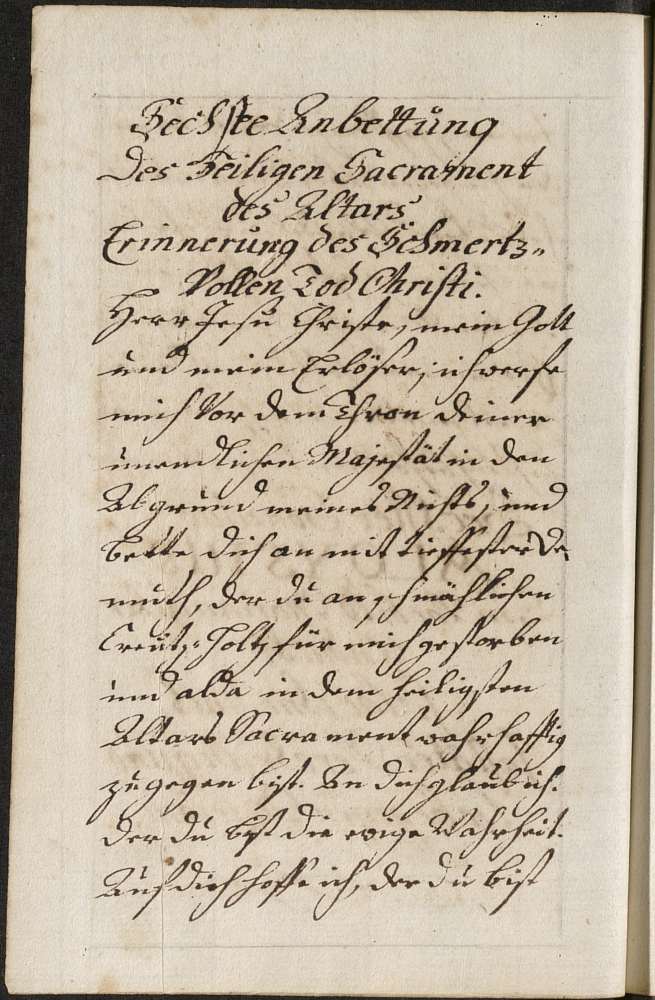 Sechste Anbettung
Des Heiligen Sacrament
des Altars
Erinnerung des Schmertz-
Vollen Tod Christi.
Herr Jesu Christe, mein Gott
und mein Erlöser, ich werfe
mich Vor dem Thron deiner
unendlichen Majestät in den
Abgrund meines Nichts, und
bette dich an mit tieffester De-
muth, der du an schmählichen
Creutz-Holtz für mich gestorben
und alda in dem heiligsten
Altars Sacrament wahrhafftig
zugegen bist. An dich glaub ich.
der du bist die ewige Wahrheit.
Auf dich hoffe ich, der du bist